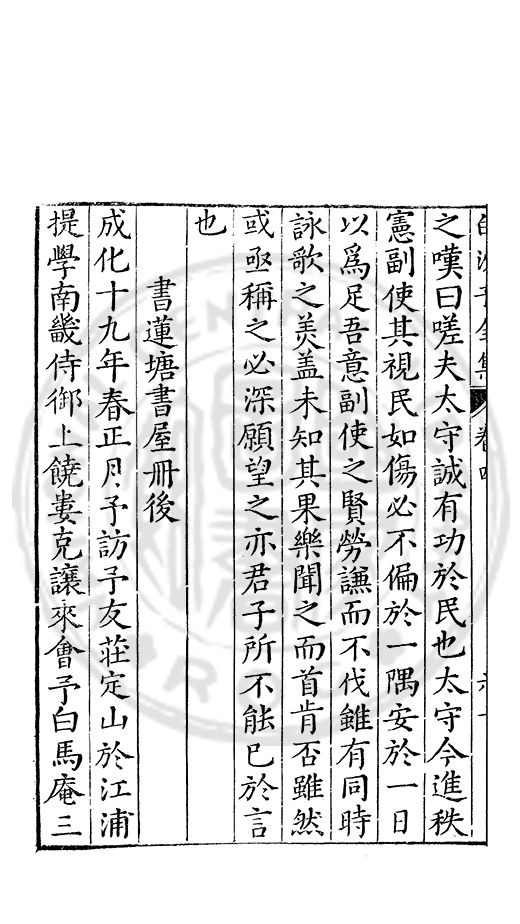 白沙子全集 卷四 六十
之嘆曰嗟夫太守誠有功於民也太守今進秩
憲副使其視民如傷必不偏於一隅安於一日
以爲足吾意副使之賢勞謙而不伐雖有同時
詠歌之羙盖未知其果樂聞之而首肯否雖然
或亟稱之必深願望之亦君子所不能已於言
也
書蓮塘書屋冊後
成化十九年春正月予訪予友莊定山於江浦
提學南畿侍御上饒婁克讓來會予白馬庵三